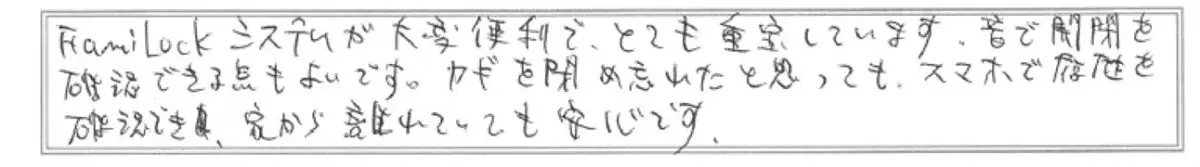 FamiLockシステムが大変便利で、とても重宝しています。音で開閉を
確認できる点もよいです。カギを閉め忘れたと思っても、スマホで施錠を
確認でき、家から離れていても安心です。